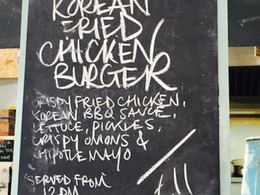 KOREAN
FRIED
CHICKEN
BURGER
CRISPY FRIED CHICKEN,
KOREAN BBQ SAUCE,
LETTUCE, PICKLES,
CRISPY ONIONS &
CHIPOTLE MAYO
SERVED FROM
12PM
£11